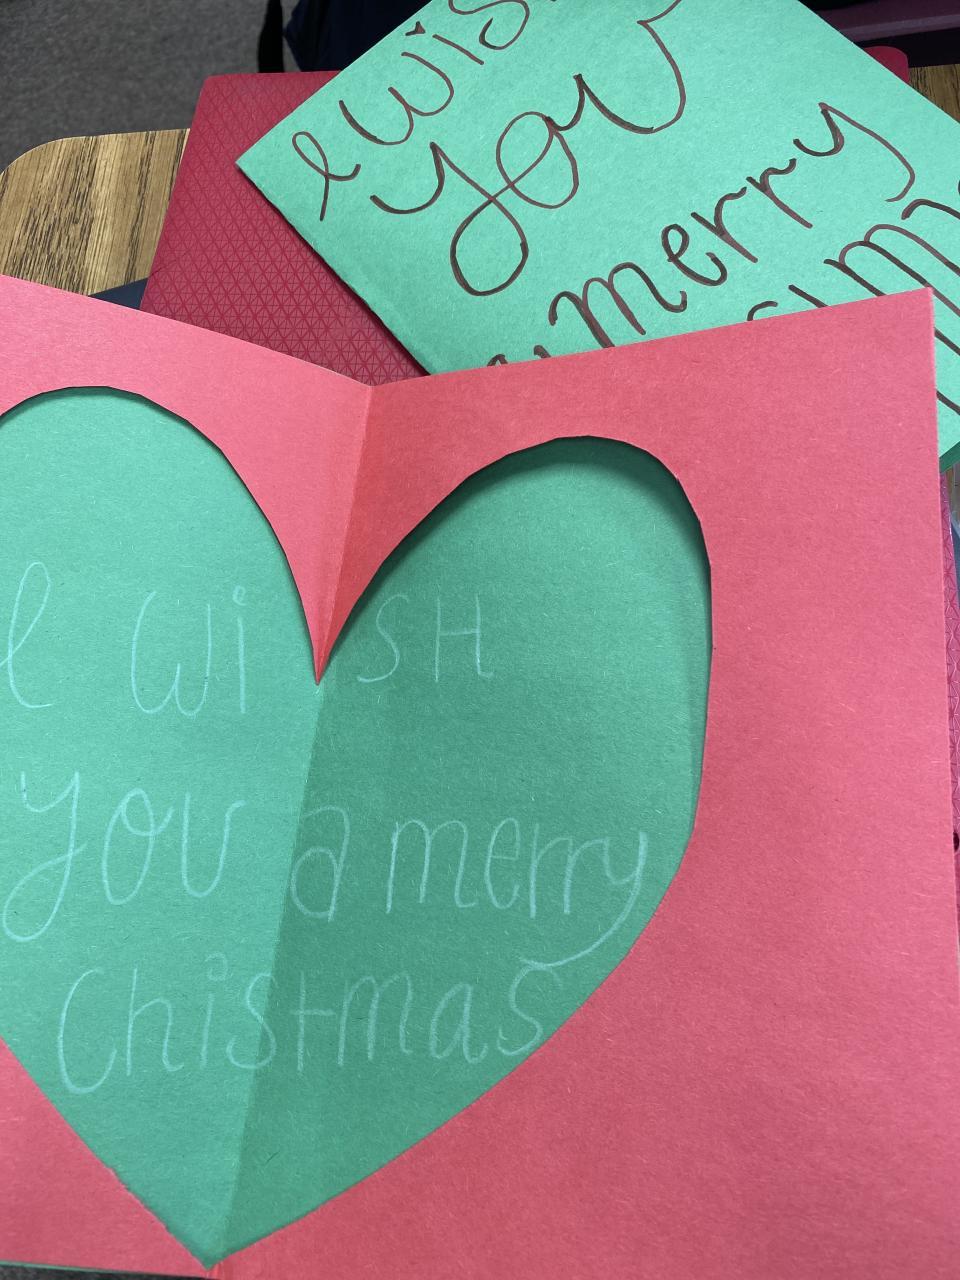 I wis
you
a merry
I wisH
you a merry
Chistmas